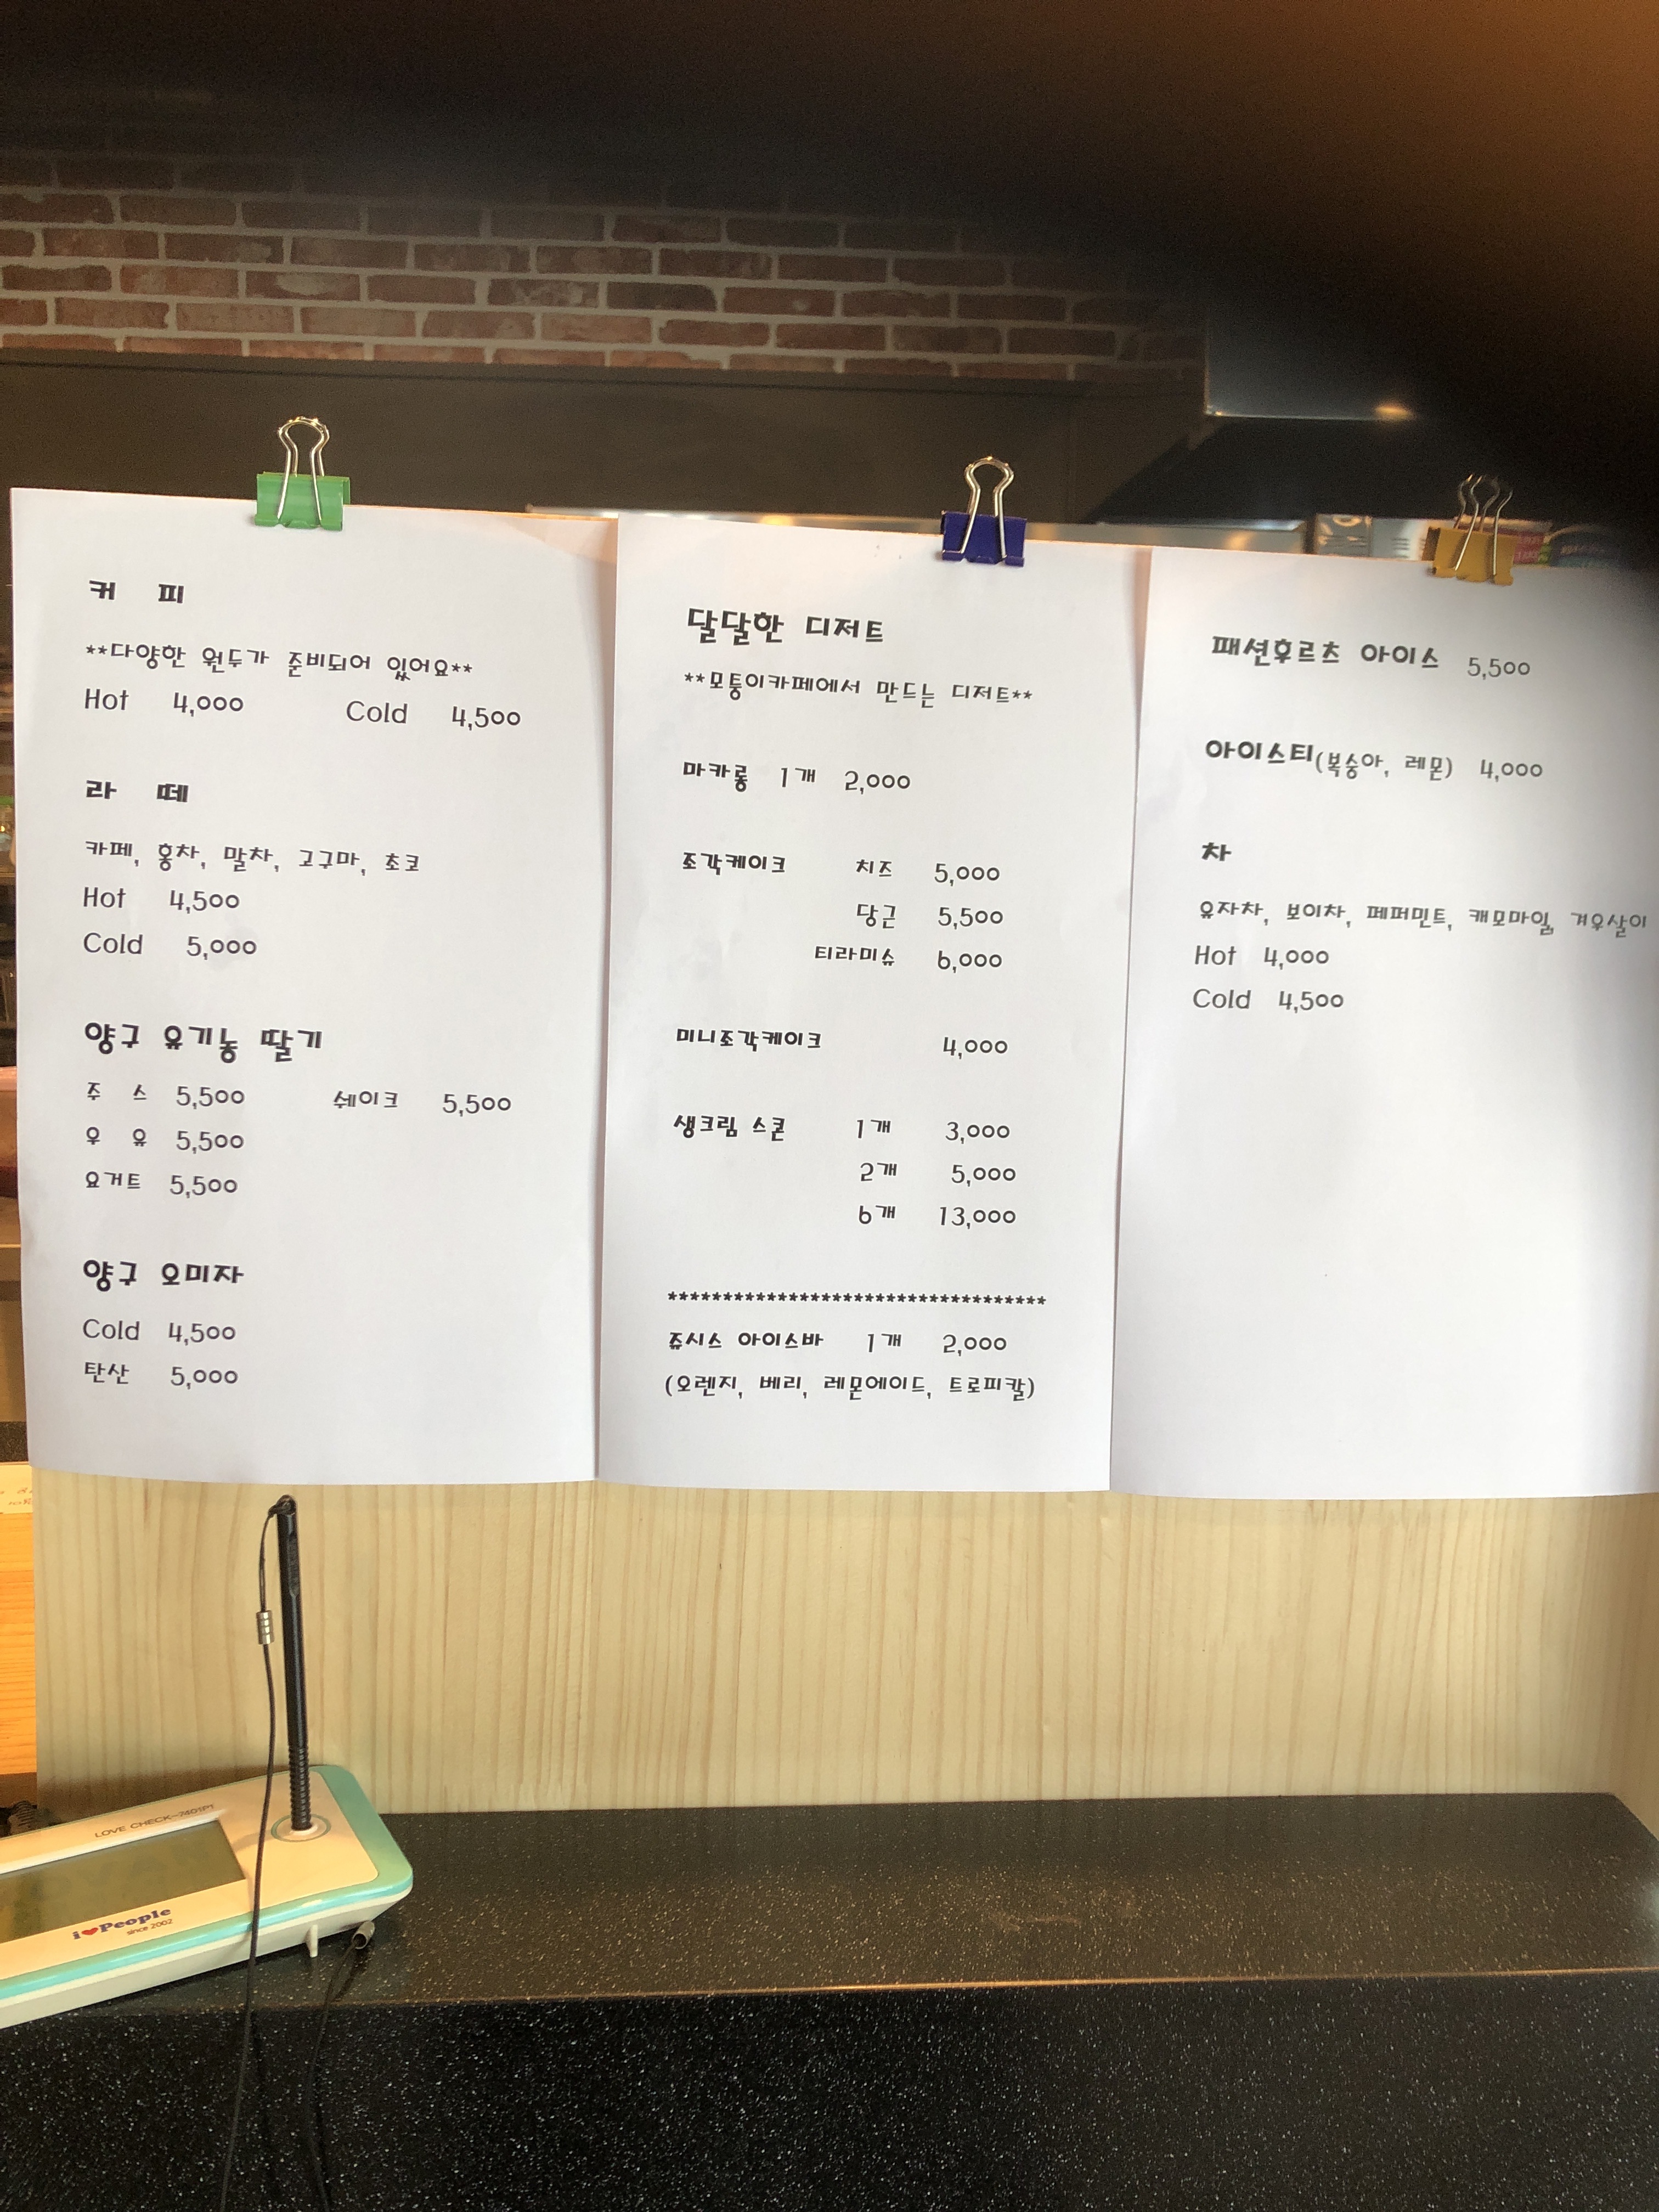 커 피
**다양한 원두가 준비되어 있어요**
Hot 4,000 Cold 4,500
라 떼
카페, 홍차, 말차, 고구마, 초코
Hot 4,500
Cold 5,000
양구 유기농 딸기
주 스 5,500 쉐이크 5,500
우 유 5,500
요거트 5,500
양구 오미자
Cold 4,500
탄산 5,000
달달한 디저트
**모퉁이카페에서 만드는 디저트**
마카롱 1개 2,000
조각케이크 치즈 5,000
당근 5,500
티라미슈 6,000
미니조각케이크 4,000
생크림 스콘 1개 3,000
2개 5,000
6개 13,000
***********************************
쥬시스 아이스바 1개 2,000
(오렌지, 베리, 레몬에이드, 트로피칼)
패션후르츠 아이스 5,500
아이스티(복숭아, 레몬) 4,000
차
유자차, 보이차, 페퍼민트, 캐모마일, 겨우살이
Hot 4,000
Cold 4,500
LOVE CHECK-7401P1
i♥People
since 2002